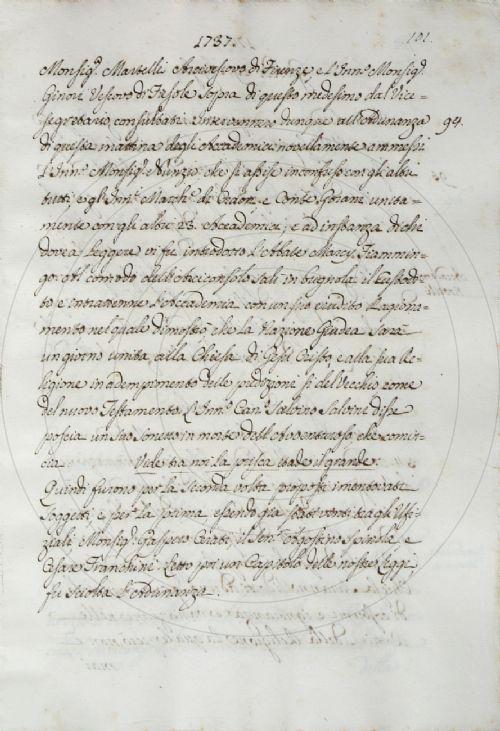 1737.
101.
Monsig.r Martelli Arcivescovo di Firenze, e l'Inn.o Monsig.r
Ginori Vescovo di Fiesole sopra di questo medesimo dal Vice-
segretario consultati. Intervennero dunque all'Adunanza
94.
di questa mattina degli Accademici novellamente ammessi
l'Inn.o Monsig.r Nunzio, che si assise inconfuso con gli altri
tutti, e gl'Inn.i March.e de e Conte unita-
mente con gli altri 23. Accademici; e ad instanza di chi
dovea leggere vi fu introdotto l'Abbate Marcy Fiammin-
go. Al comodo dell'Arciconsolo salì in bugnola il Custode
to e intrattenne l'Accademia con un suo erudito Ragiona-
mento nel quale dimostrò che la Nazione Giudea sarà
un giorno unita alla Chiesa di Gesù Cristo e alla sua Re-
ligione in adempimento delle predizioni sì del Vecchio come
del nuovo Testamento. L'Inn.o Can.o Salvino Salvini disse
poscia un suo Sonetto in morte dell' che comin-
cia Vide tra noi la prisca etade il grande:
Quindi furono per la seconda volta proposti i mentovati
Soggetti, e per la prima essendo già stati vinti tra gli Uffi-
ziali Monsig.r Gaspero Cerati, il Sen.r Agostino Spinola e
Cesare Franchini. Letto poi un Capitolo delle nostre Leggi
fu sciolta l'Adunanza.